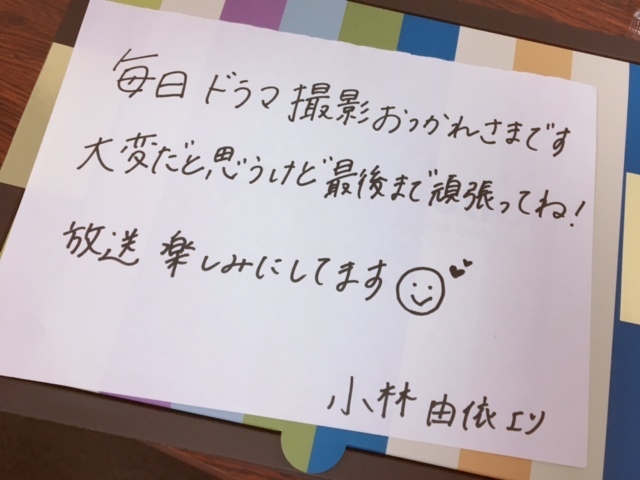 毎日ドラマ撮影おつかれさまです
大変だと思うけど最後まで頑張ってね!
放送楽しみにしてます
小林由依より